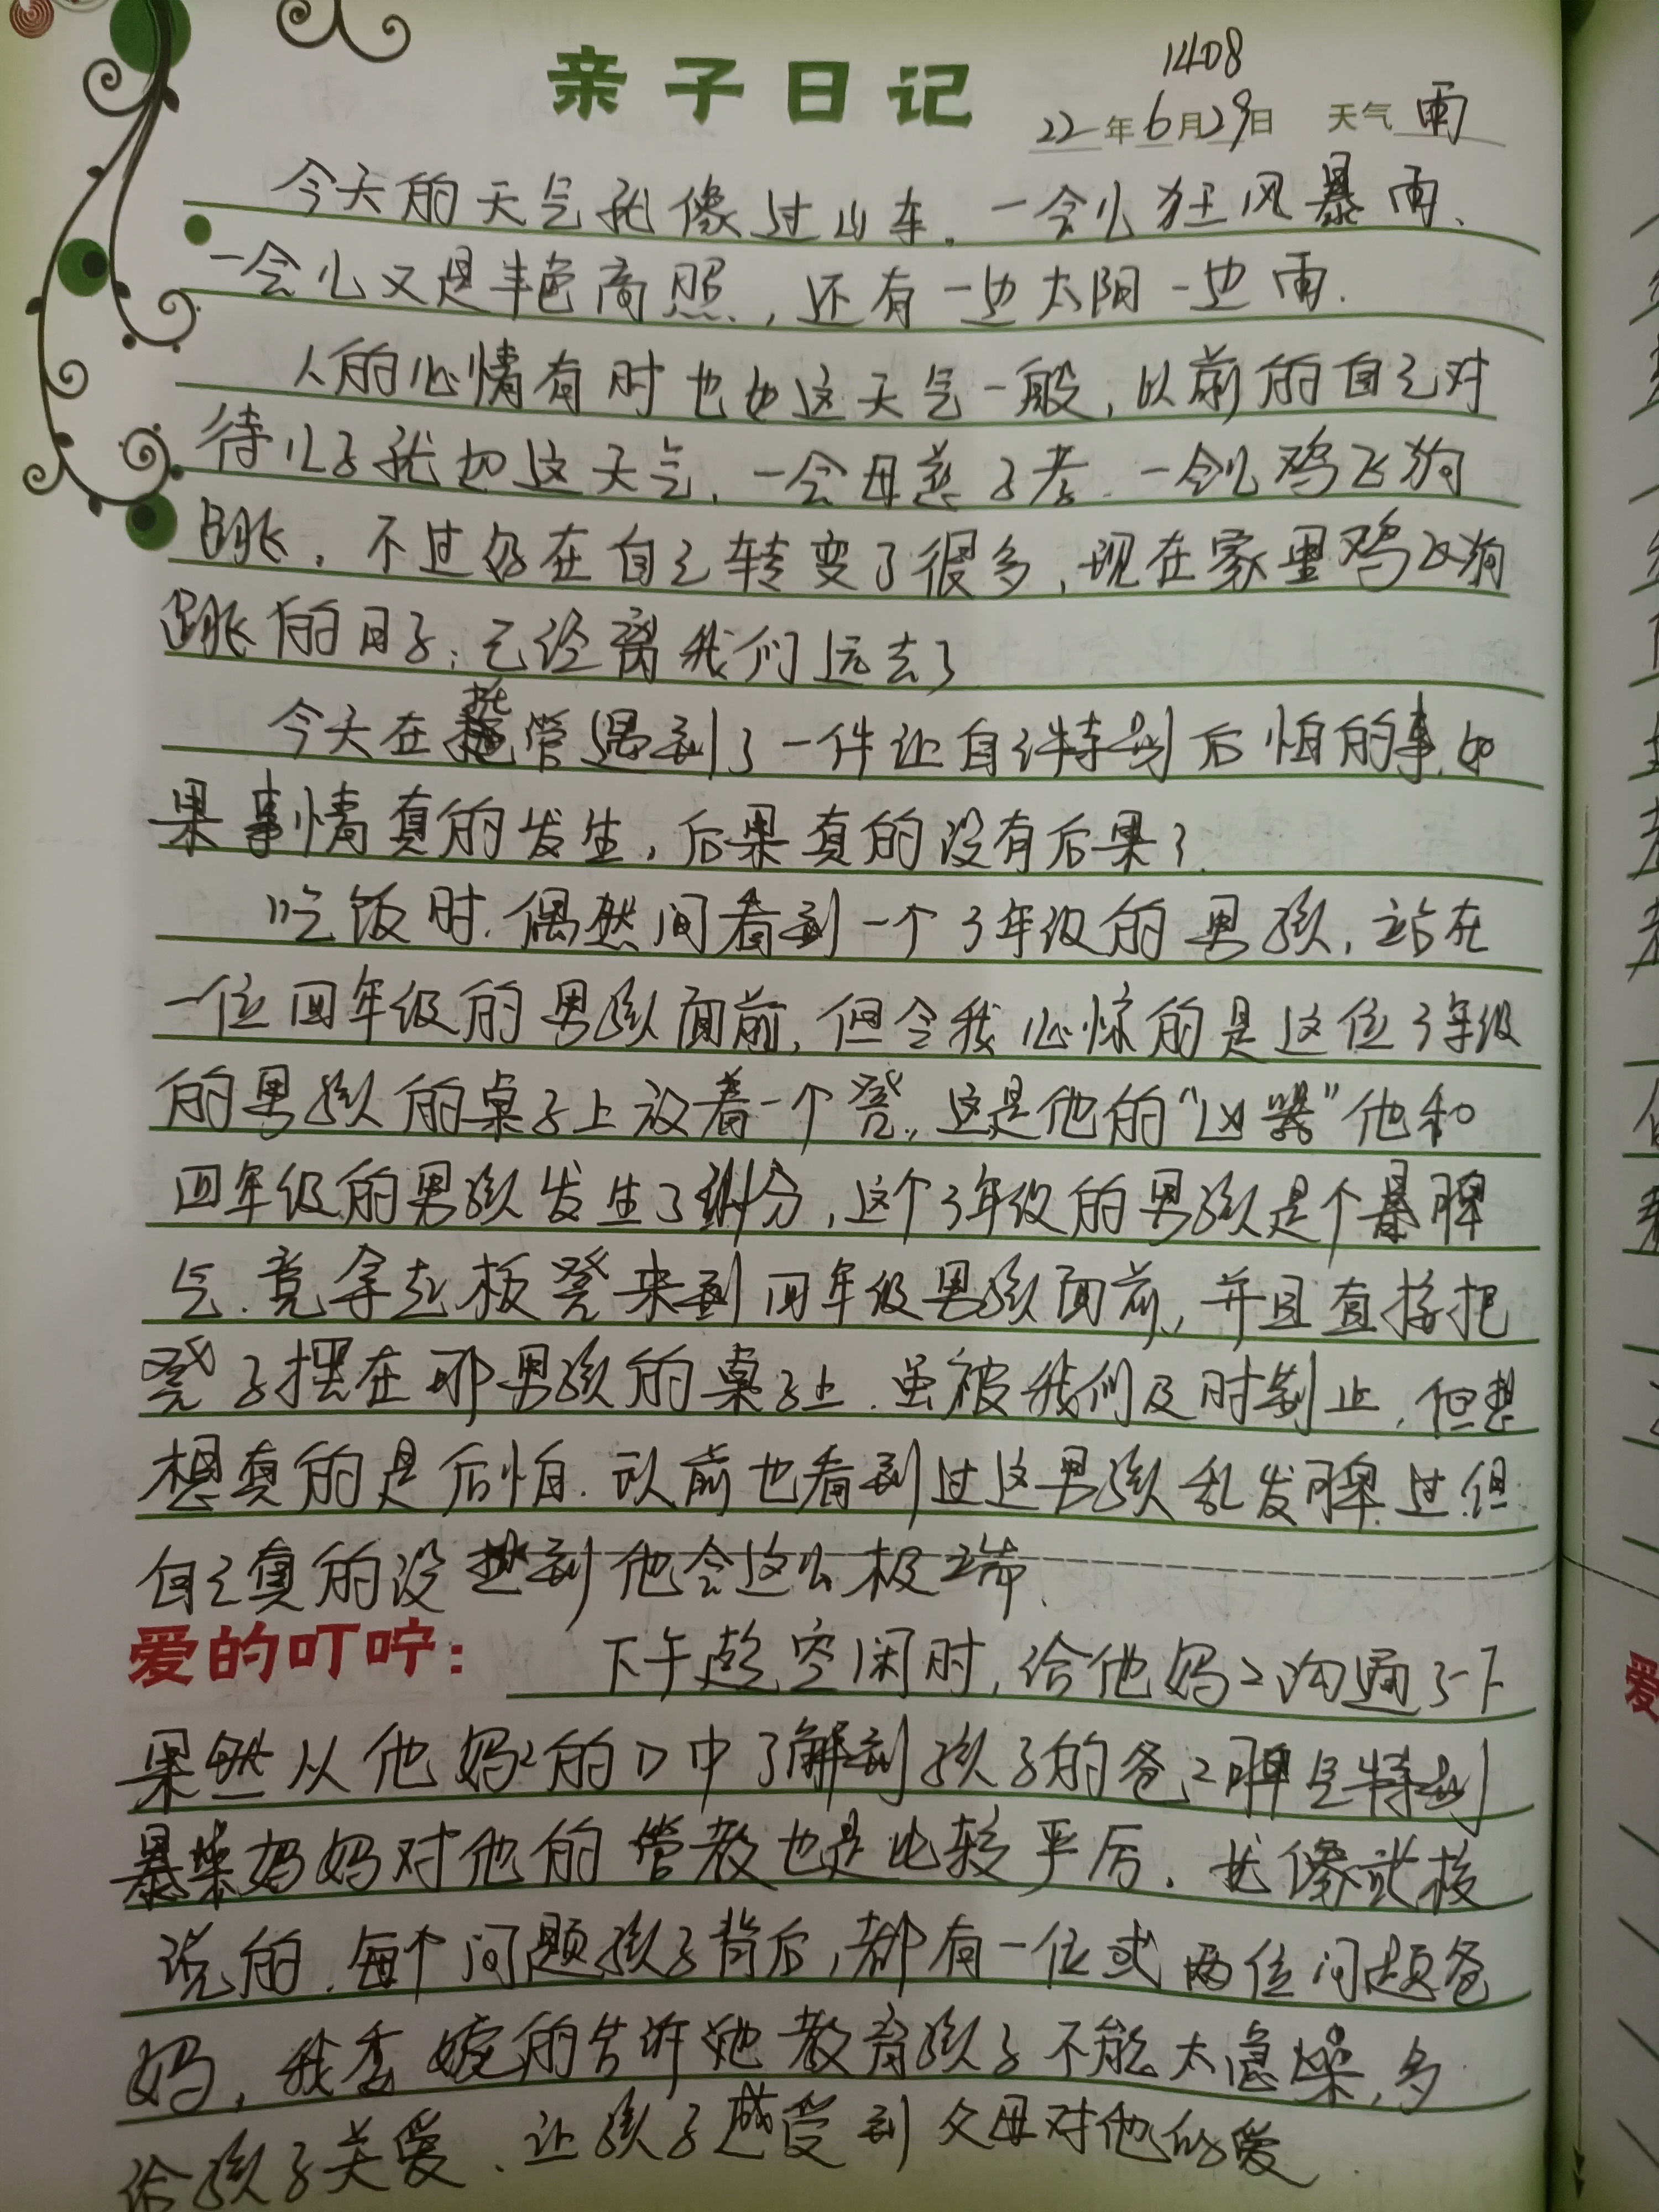 1408
亲子日记
22年6月29日 天气雨
今天的天气就像过山车,一会儿狂风暴雨、
一会儿又是艳高照,还有一边太阳一边雨.
人的心情有时也如这天气一般,以前的自己对
待儿子就如这天气,一会母慈子孝.一会儿鸡飞狗
跳,不过好在自己转变了很多,现在家里鸡飞狗
跳的日子,已经离我们远去了
今天在托管遇到了一件让自己特别后怕的事,如
果事情真的发生,后果真的没有后果了.
吃饭时.偶然间看到一个3年级的男孩,站在
一位四年级的男孩面前,但令我心惊的是这位3年级
的男孩的桌子上放着一个凳,这是他的“凶器”他和
四年级的男孩发生了纠分,这个3年级的男孩是个暴脾
气.竟拿起板凳来到四年级男孩面前,并且直接把
凳子摆在那男孩的桌子上.虽被我们及时制止,但想
想真的是后怕.以前也看到过这男孩乱发脾.过.但
自己真的没想到他会这么极端.
爱的叮咛: 下午趁空闲时,给他妈妈沟通了一下
果然从他妈妈的口中了解到孩子的爸爸脾气特别
暴躁妈妈对他的管教也是比较严厉.就像武校
说的.每个问题孩子背后,都有一位或两位问题爸
妈,我委婉的告诉她教育孩子不能太急燥,多
给孩子关爱.让孩子感受到父母对他的爱.
爱